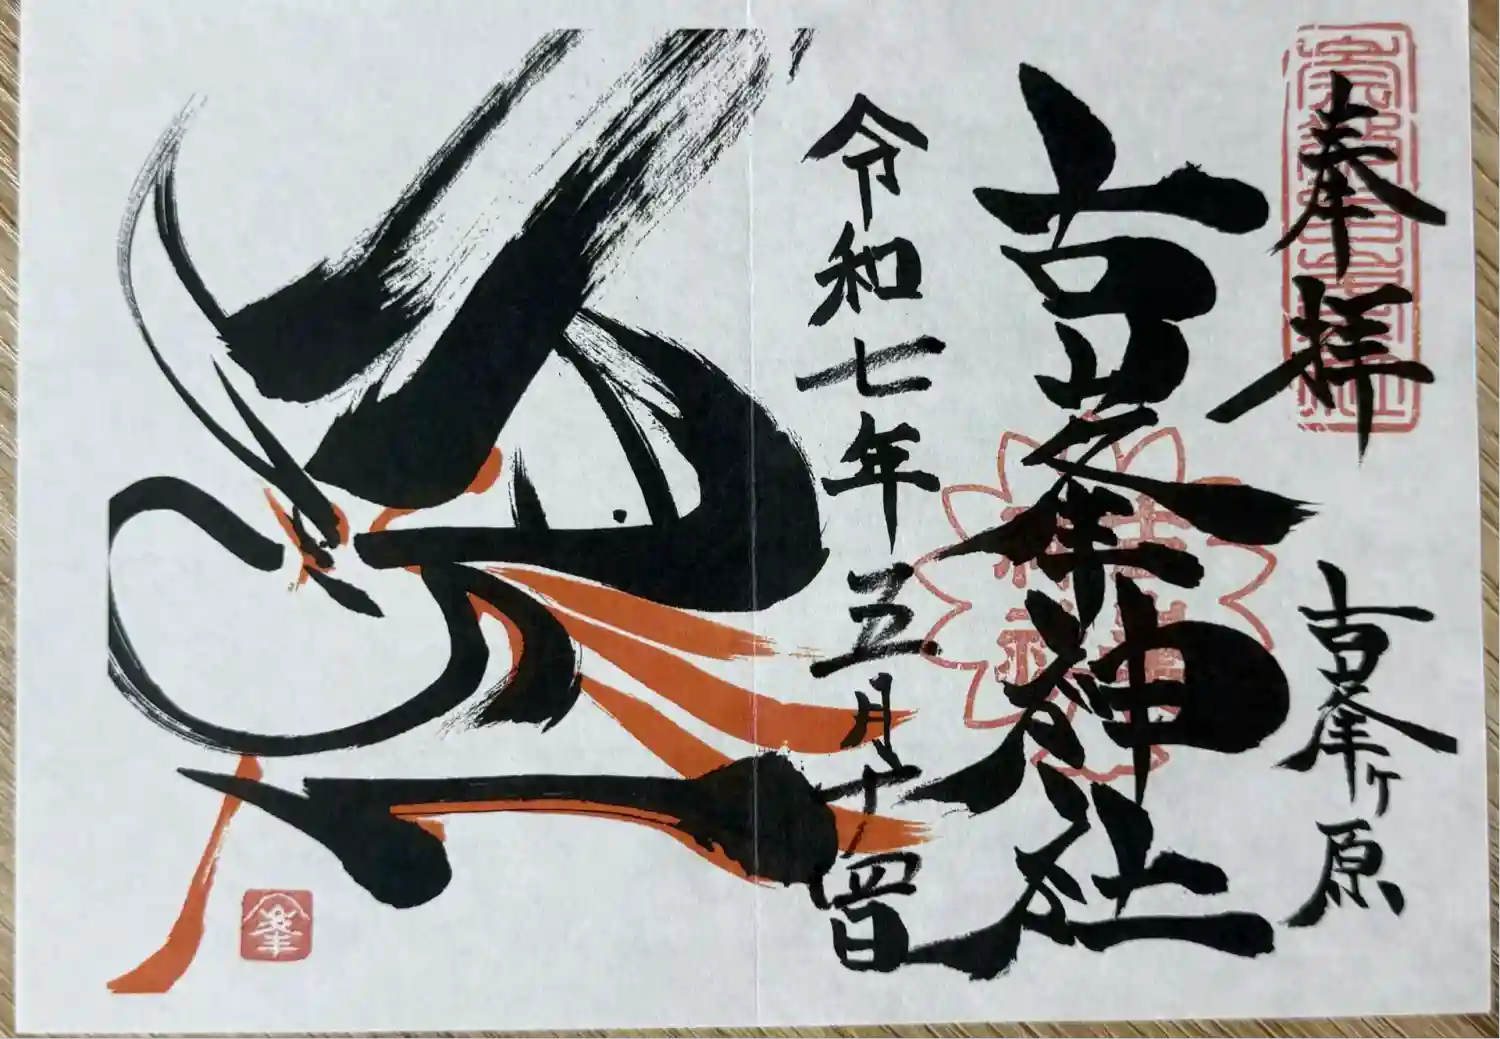 奉拝
古峯ヶ原
古峯神社
令和七年五月十四日
峯